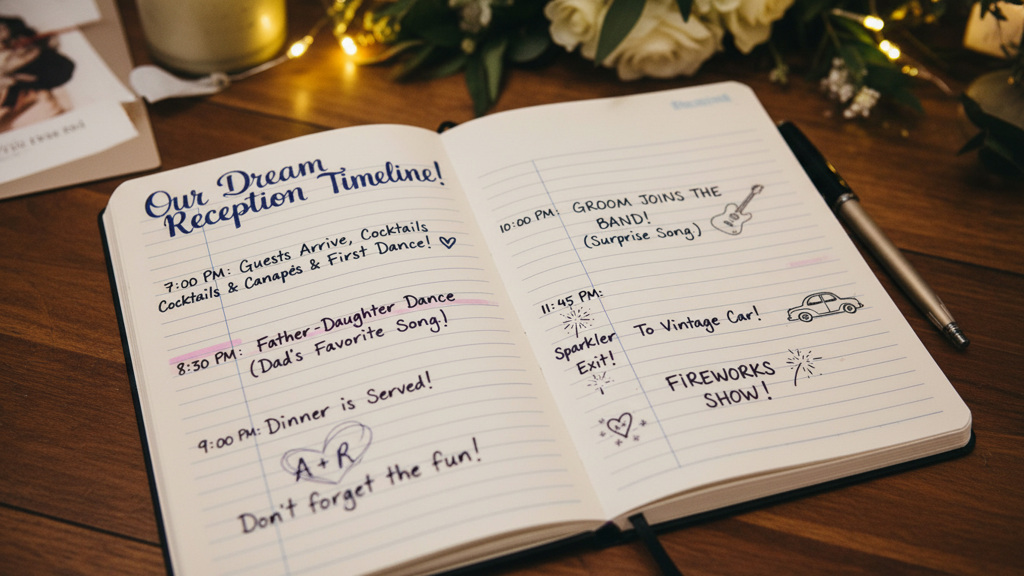 Our Dream
Reception Timeline!
7:00 PM: Guests Arrive, Cocktails
Cocktails & Canapés & First Dance!
8:30 PM: Father-Daughter Dance
(Dad's Favorite Song!)
9:00 PM: Dinner is Served!
A + R
Don't forget the fun!
10:00 PM: GROOM JOINS THE
BAND!
(Surprise Song)
11:45 PM:
Sparkler
Exit!
To Vintage Car!
FIREWORKS
SHOW!